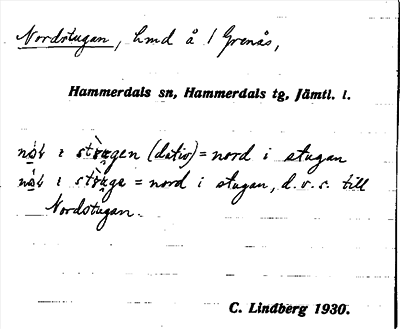 Nordstugan, lmd å 1 Grenås,
Hammerdals sn, Hammerdals tg, Jämtl. l.
i (dativ) = nord i stugan
i = nord i stugan, d.v.s. till
Nordstugan.
C. Lindberg 1930.